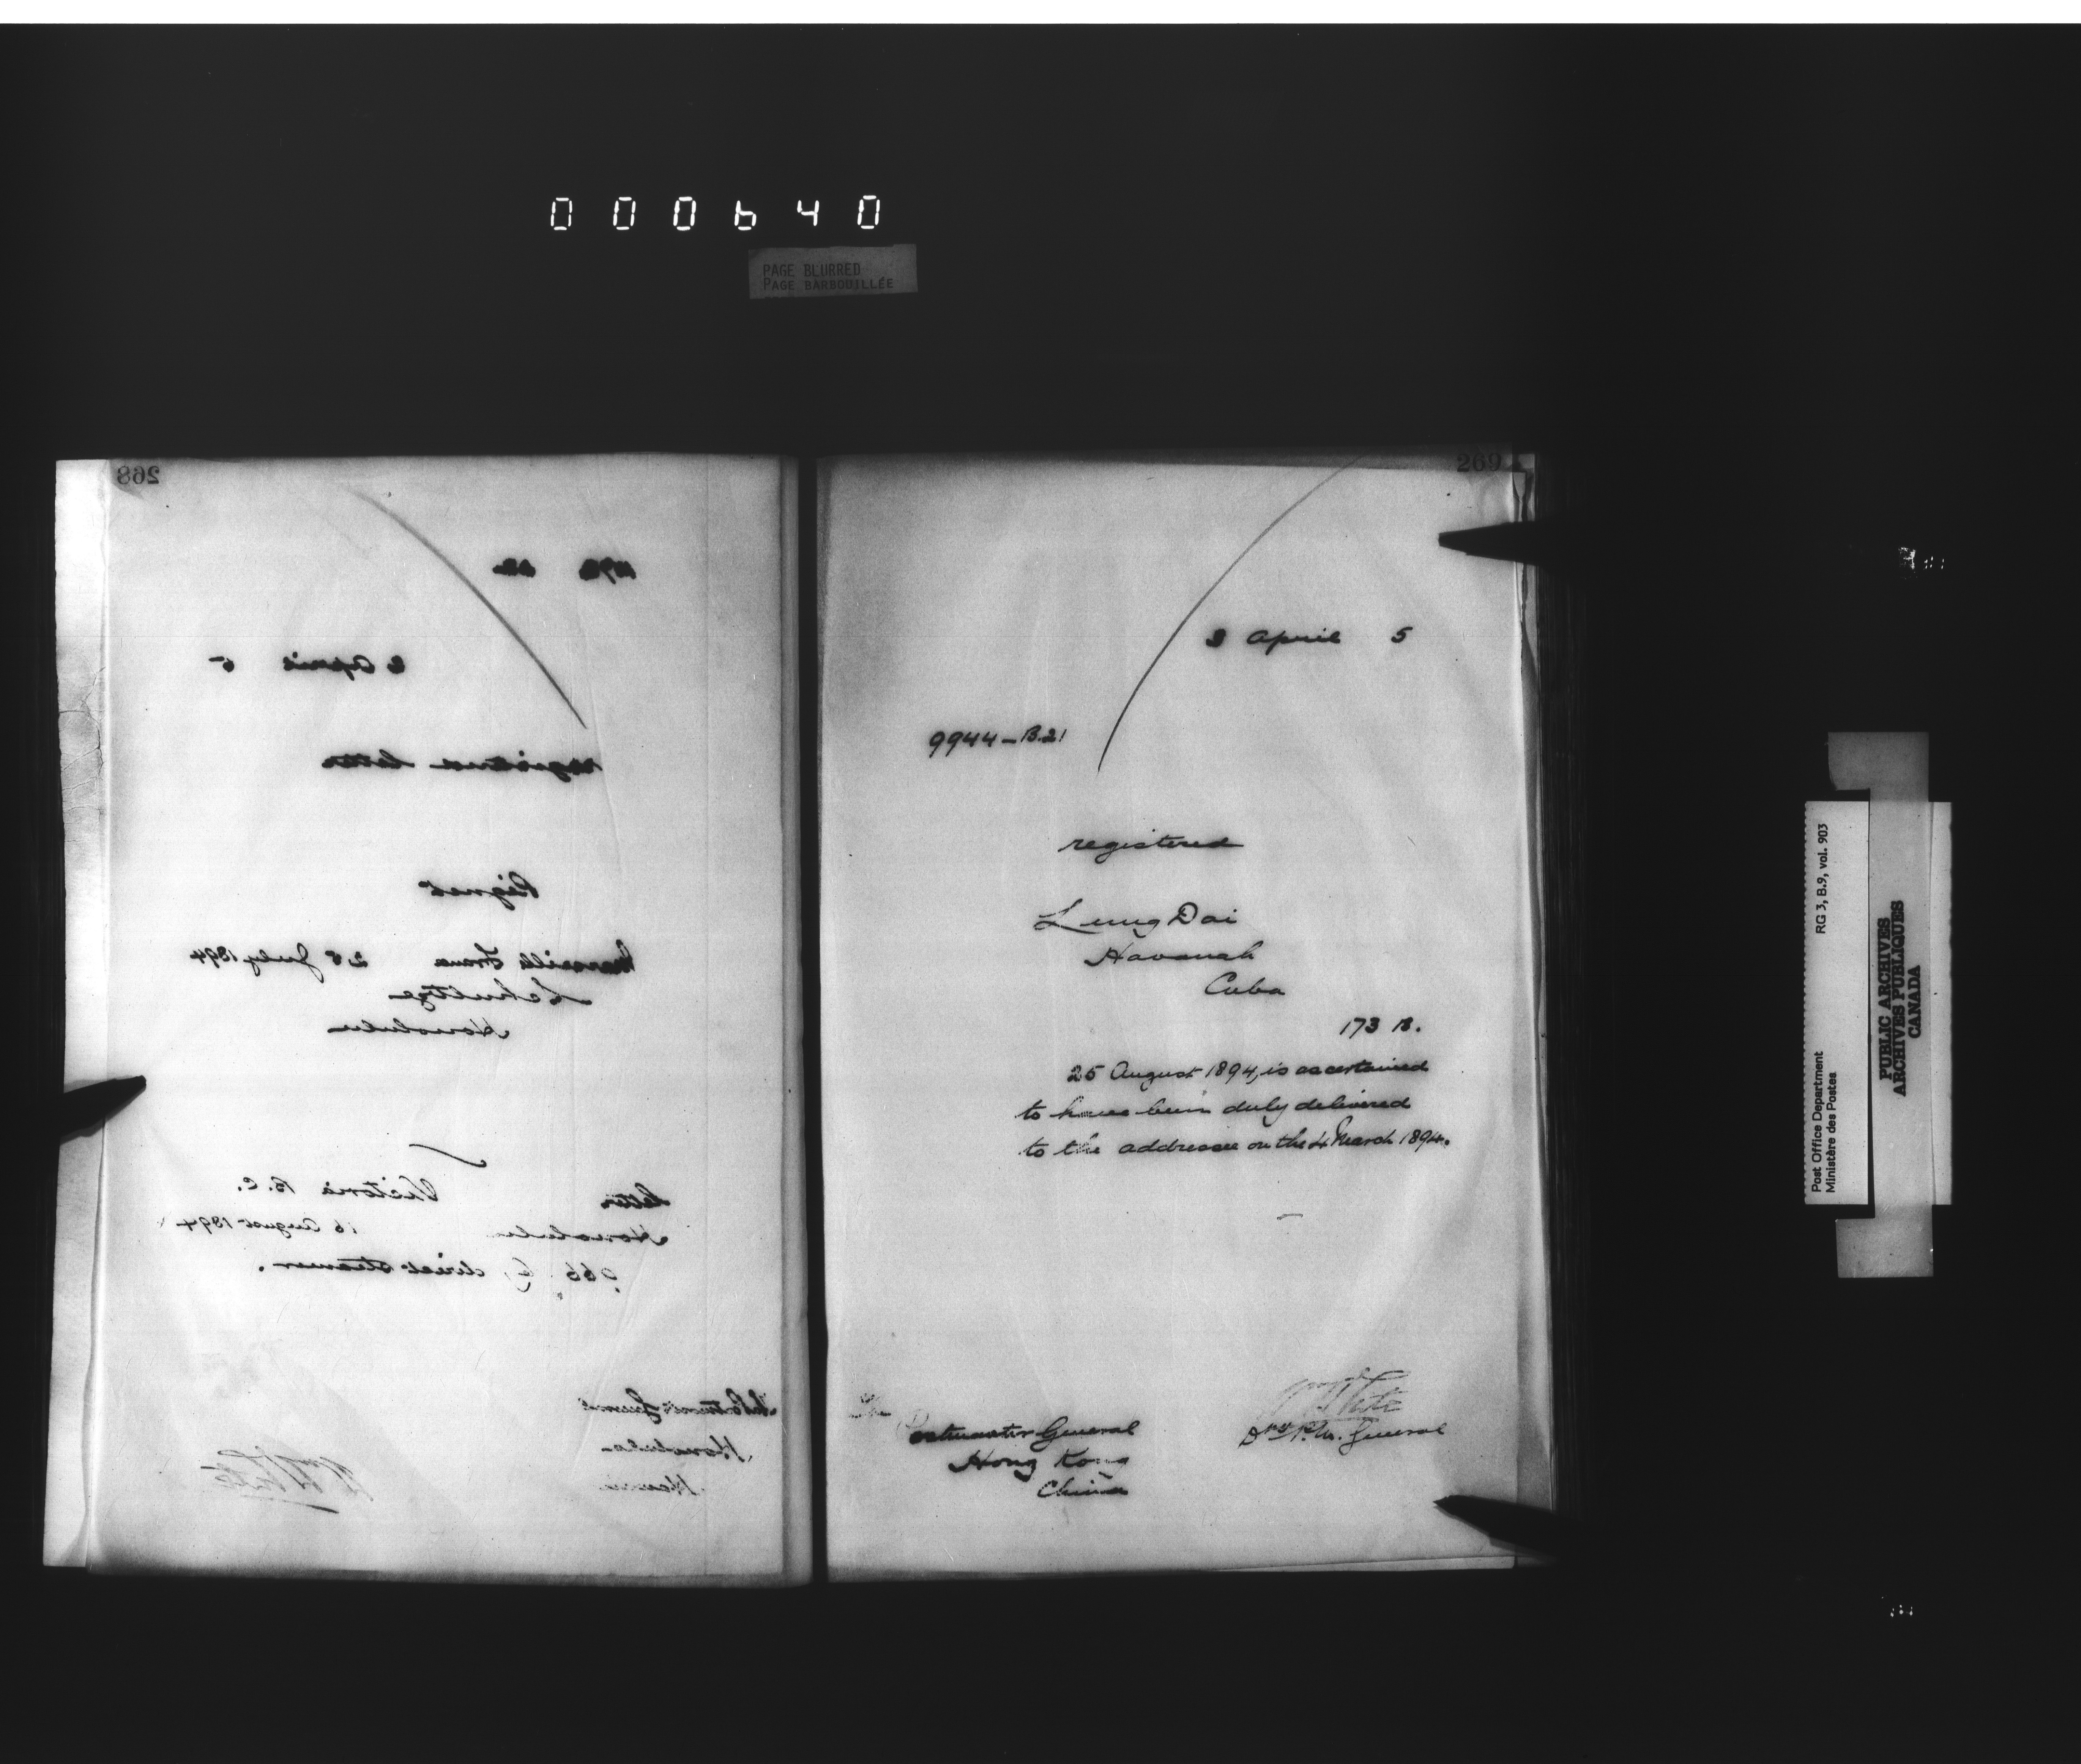 000640
PAGE BLURRED
PAGE BARBOUILLÉE
268
2 April 5
registered letter
Reignet
Marseille France 28 July 1894
Schultze
Honolulu
letter Victoria B.C.
Honolulu 16 August 1894
966 by direct steamer.
Postmaster General
Honolulu
Hawaii
Wm White
269
3 April 5
9944-B.21
registered
Lung Dai
Havanah
Cuba
173 B.
25 August 1894, is ascertained
to have been duly delivered
to the addressee on the 4 March 1894.
The
Postmaster General
Hong Kong
China
Wm White
D. P. M. General
Post Office Department RG 3, B.9, vol. 903
Ministère des Postes
PUBLIC ARCHIVES
ARCHIVES PUBLIQUES
CANADA